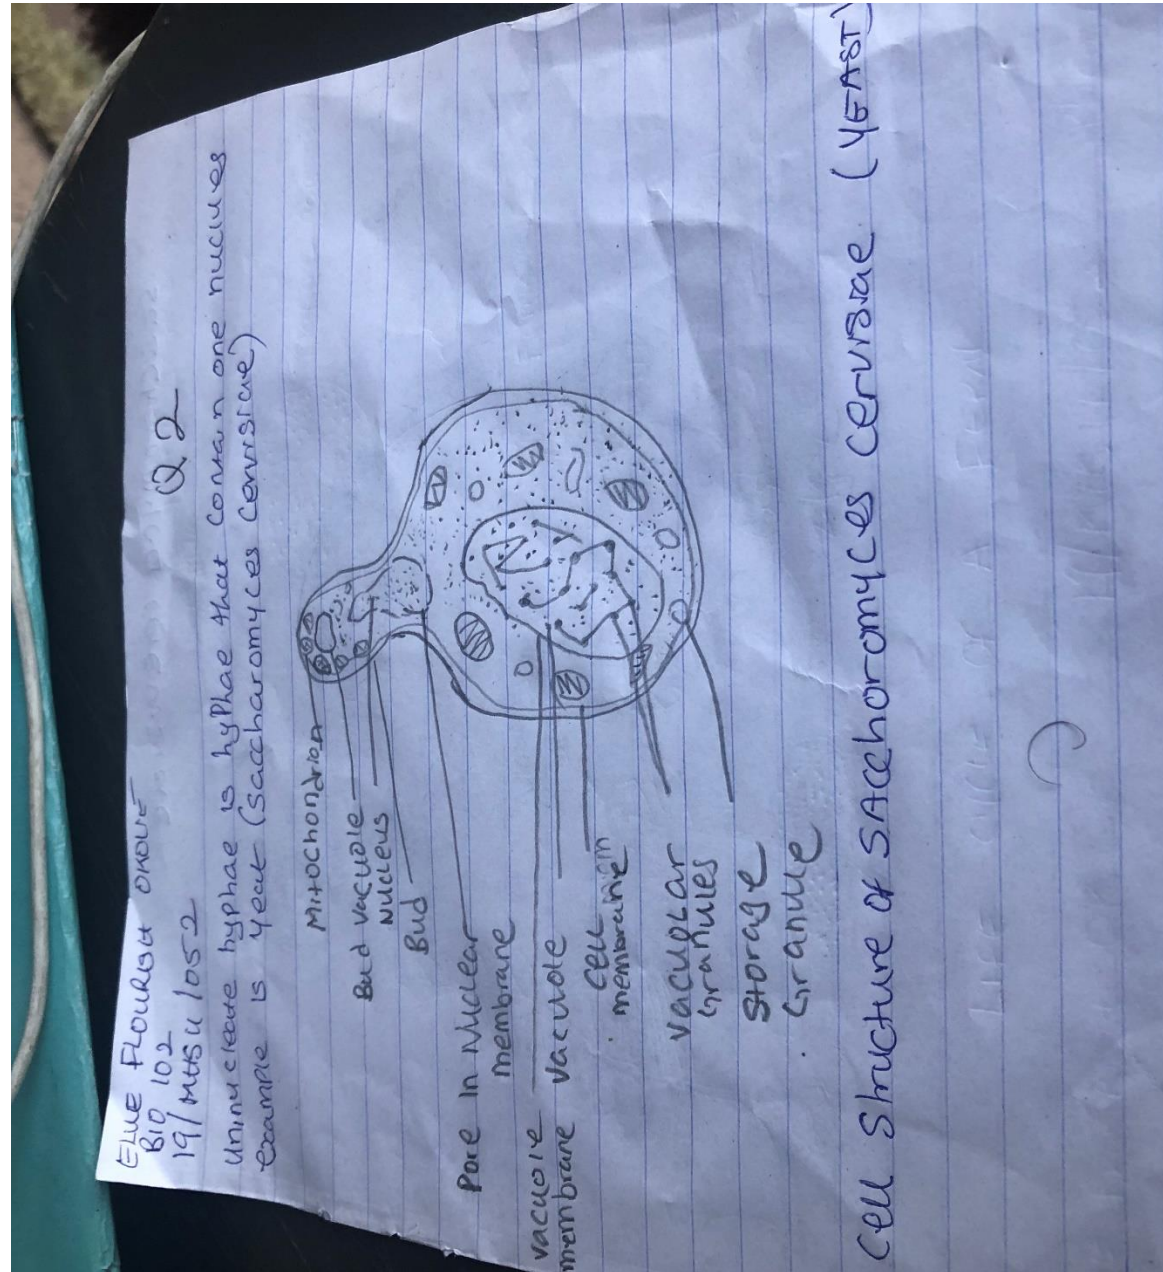 ELUE FLOURISH
BIO 102
19/MHS01/052
Q2
Uninucleate hyphae is hyphae that contain one nucleus
example is yeast (Saccharomyces cervisiae)
Mitochondrion
Bud vacuole
Nucleus
Bud
Pore In Nuclear
membrane
vacuole
membrane
vacuole
cell
membrane
vacuolar
Granules
storage
Granule
Cell structure of SAccHoromyces cervisiae (YEAST)
LIFE CYCLE OF A FERN